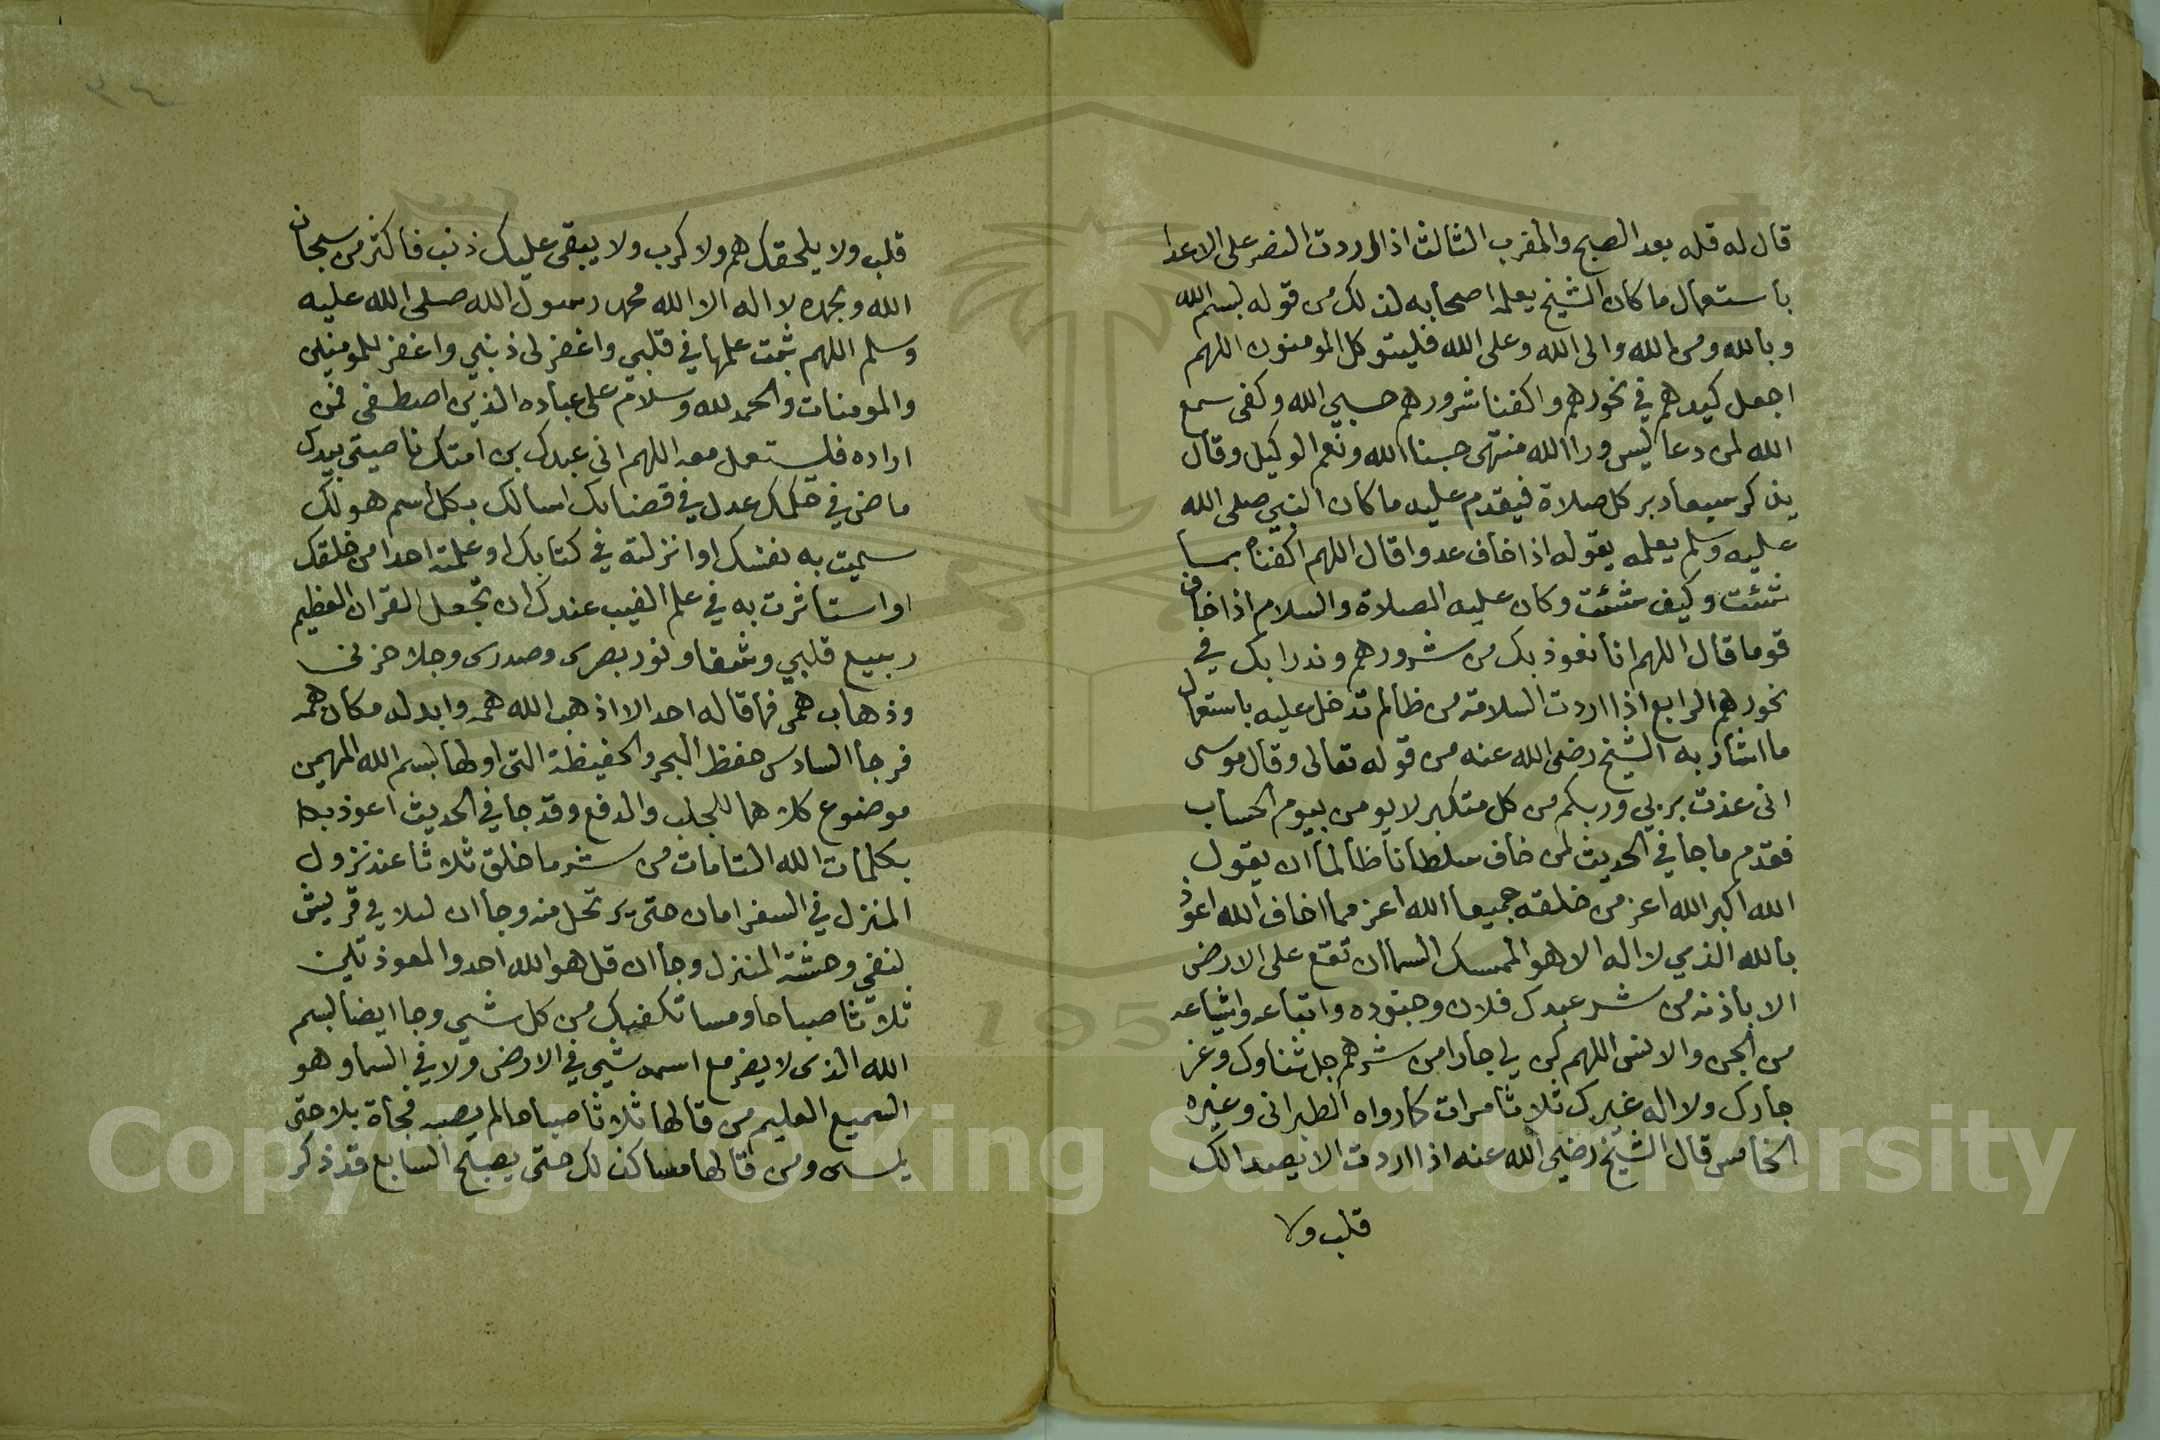 قال له قله بعد الصبح والمغرب الثالث اذا اردت النصر على الاعدا
باستعمال ما كان الشيخ يعلمه اصحابه لذلك من قوله بسم الله
وبالله ومن الله والى الله وعلى الله فليتوكل المومنون اللهم
اجعل كيدهم في نحورهم واكفنا شرورهم حسبي الله وكفى سمع
الله لمن دعا ليس ورا الله منتهى حسبنا الله ونعم الوكيل وقال
يذكر سبعا دبر كل صلاة فيقدم عليه ما كان النبي صلى الله
عليه وسلم يعلمه يقوله اذا خاف عدوا قال اللهم اكفناهم بما
شئت وكيف شئت وكان عليه الصلاة والسلام اذا خاف
قوما قال اللهم انا نعوذ بك من شرورهم وندرا بك في
نحورهم الرابع اذا اردت السلامة من ظالم تدخل عليه باستعمال
ما اشار به الشيخ رضى الله عنه من قوله تعالى وقال موسى
انى عذت بربي وربكم من كل متكبر لا يومن بيوم الحساب
فقدم ما جا في الحديث لمن خاف سلطانا ظالما ان يقول
الله اكبر الله اعز من خلقه جميعا الله اعز مما اخاف الله اعوذ
بالله الذي لا اله الا هو الممسك السما ان تقع على الارض
الا باذنه من شر عبدك فلان وجنوده واتباعه واشياعه
من الجن والانس اللهم كن لي جارا من شرهم جل ثناوك وعز
جارك ولا اله غيرك ثلاثا مرات كما رواه الطبرانى وغيره
الخامس قال الشيخ رضى الله عنه اذا اردت الا يصدا لك
قلب ولا
قلب ولا يلحقك هم ولا كرب ولا يبقى عليك ذنب فاكثر من سبحان
الله وبحمده لا اله الا الله محمد رسول الله صلى الله عليه
وسلم اللهم ثبت علمها في قلبي واغفر لى ذنبي واغفر للمومنين
والمومنات والحمد لله وسلام على عباده الذين اصطفى فمن
اراده فليستعمل معه اللهم انى عبدك بن امتك ناصيتى بيدك
ماض في حكمك عدل في قضاك اسالك بكل اسم هو لك
سميت به نفسك او انزلته في كتابك او علمته احدا من خلقك
او استاثرت به في علم الغيب عندك ان تجعل القران العظيم
ربيع قلبي وشفا ونور بصرى وصدرى وجلا حزنى
وذهاب همى فما قاله احد الا اذهب الله همه وابدله مكان همه
فرجا السادس حفظ البحر والحفيظة التى اولها بسم الله المهيمن
موضوع كلاهما للجلب والدفع وقد جا في الحديث اعوذ
بكلمات الله التامات من شر ما خلق ثلاثا عند نزول
المنزل في السفر امان حتى يرتحل منه وجا ان لئلاف قريش
لنفى وحشة المنزل وجا ان قل هو الله احد والمعوذتين
ثلاثا صباحا ومسا تكفيك من كل شي وجا ايضا بسم
الله الذى لا يضر مع اسمه شي في الارض ولا في السما وهو
السميع العليم من قالها ثلاثا صباحا لم يصبه فجأة بلا حتى
يمسى ومن قالها مسا كذلك حتى يصبح السابع قد ذكر
٣٤
1957
Copyright © King Saud University